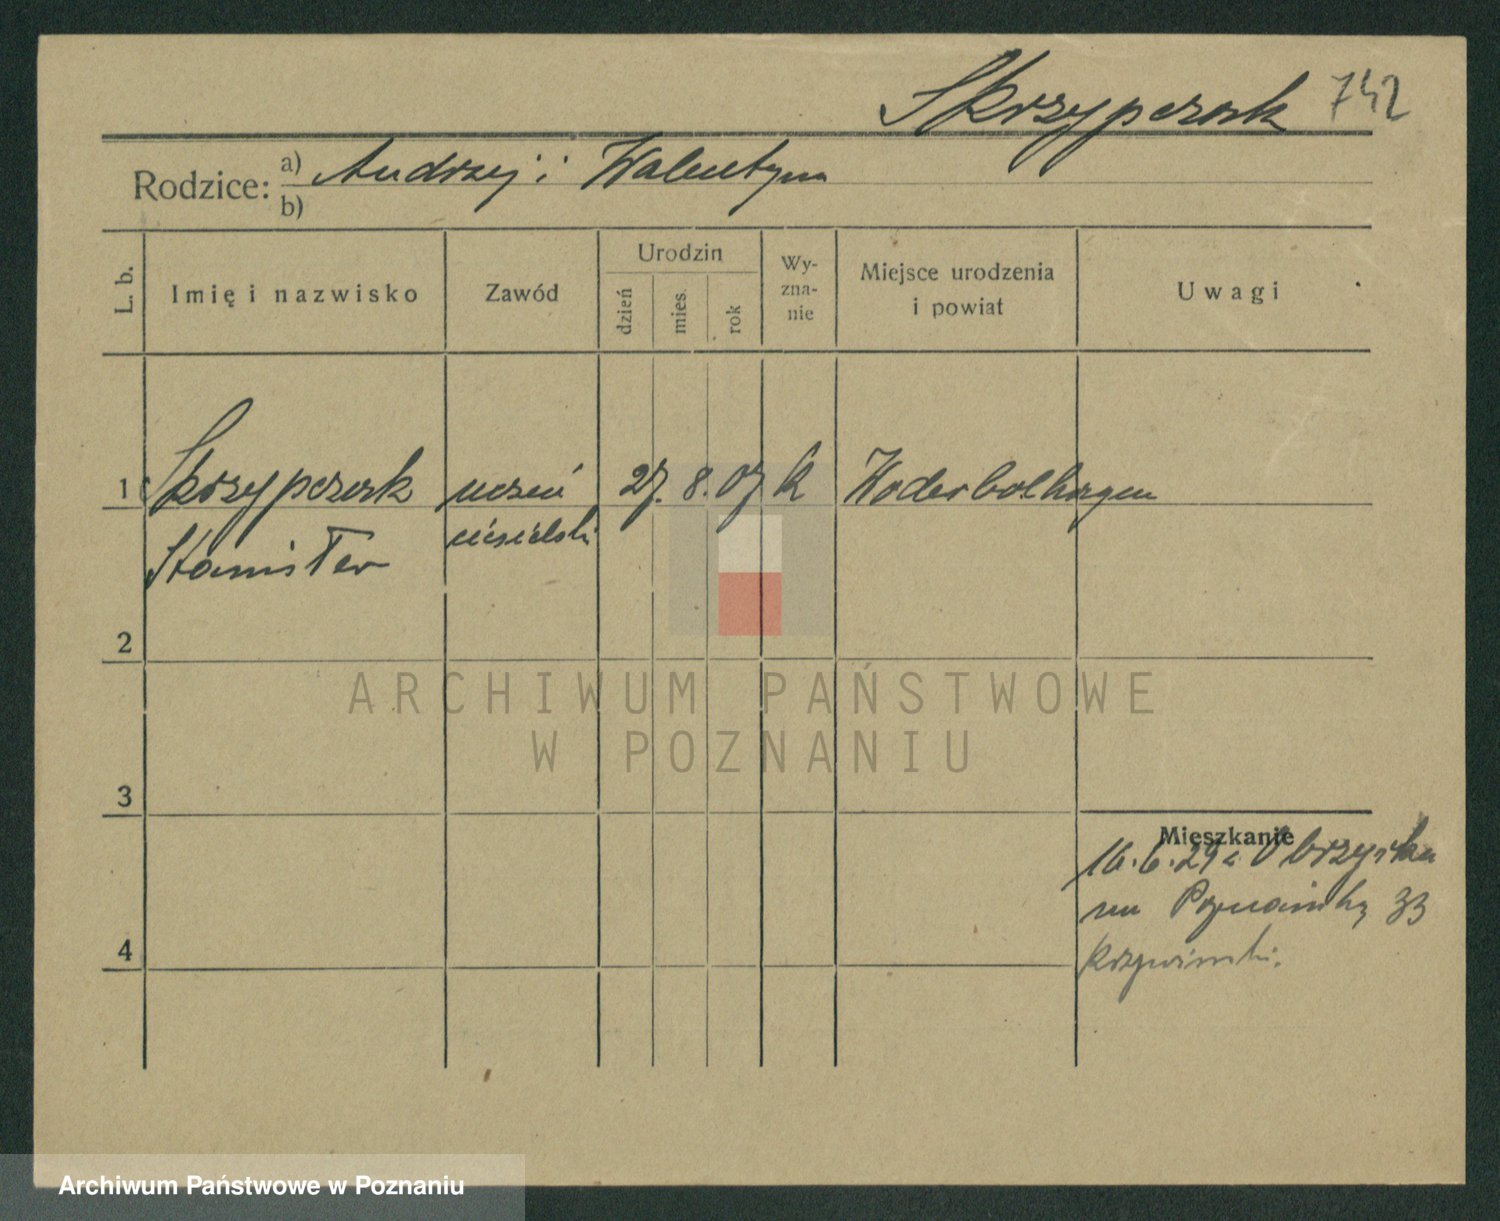 Skrzypczak 742
Rodzice: a) Andrzej i Walentyna
b)
L. b.
Imię i nazwisko
Zawód
Urodzin
dzień
mies.
rok
Wy-
zna-
nie
Miejsce urodzenia
i powiat
Uwagi
1 Skrzypczak uczeń 27. 8. 07 k Woderbolhagen
Stanisław ciesielski
2
3
4
Mieszkanie
16.6.29 z Obrzycka
na Poznańską 33
ARCHIWUM PAŃSTWOWE
W POZNANIU
Archiwum Państwowe w Poznaniu